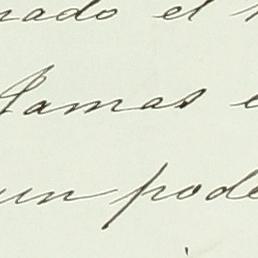 nado el
lamas e
un pode